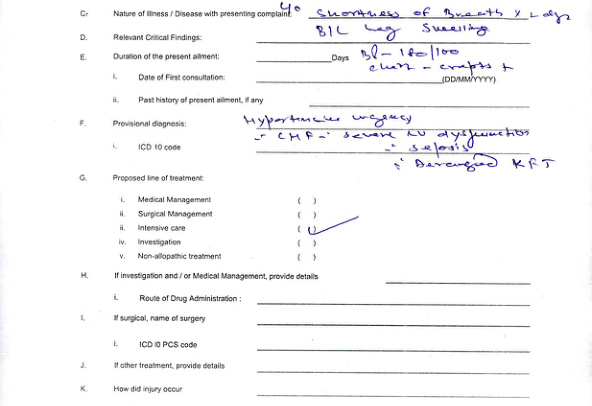 C. Nature of Illness / Disease with presenting complaint: Yo Shortness of Breath x 2 dys
D. Relevant Critical Findings: B/L Leg Swelling
E. Duration of the present ailment: Days BP - 180/100
chest - crepts +
i. Date of First consultation: (DD/MM/YYYY)
ii. Past history of present ailment, if any
F. Provisional diagnosis: Hypertensive urgency
- CHF - severe LV dysfunction
i. ICD 10 code
- sepsis
Deranged KFT
G. Proposed line of treatment:
i. Medical Management ( )
ii. Surgical Management ( )
ii. Intensive care ( ✓ )
iv. Investigation ( )
v. Non-allopathic treatment ( )
H. If investigation and / or Medical Management, provide details
i. Route of Drug Administration :
I. If surgical, name of surgery
i. ICD I0 PCS code
J. If other treatment, provide details
K. How did injury occur